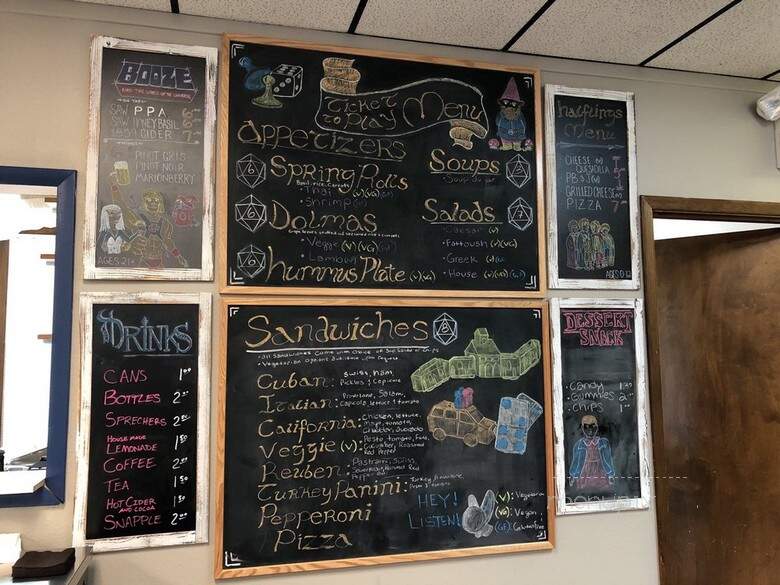 BOOZE
PPA 6
CIDER 7
PINOT GRIS
PINOT NOIR
MARIONBERRY
AGES 21+
Ticket
to Play Menu
Appetizers
6 Spring Rolls
Thai
Shrimp
6 Dolmas
Veggie (V) (VG)
Lamb
6 Hummus Plate (V) (VG)
Soups 3
Soup du jour
Salads 7
Caesar
Fattoush (V) (VG)
Greek
House
halflings
Menu
CHEESE
QUESADILLA
PB & J
GRILLED CHEESE
PIZZA
DRINKS
CANS
BOTTLES
SPRECHERS
HOUSE MADE
LEMONADE
COFFEE
TEA
HOT CIDER
AND COCOA
SNAPPLE
Sandwiches 8
Cuban: Swiss, Ham,
Pickles & Capicola
Italian: Provolone, Salami,
Capicola, lettuce & tomato
California: Chicken, lettuce,
mayo, tomato,
Cheddar, avocado
Veggie (V): Pesto, tomato, Feta,
Cucumber, Roasted
Red Pepper
Reuben: Pastrami, Swiss,
Turkey Panini:
Pepperoni
Pizza
HEY!
LISTEN!
(V): Vegetarian
(VG): Vegan
(GF): Gluten Free
DESSERT
SNACK
Candy
Gummies
Chips